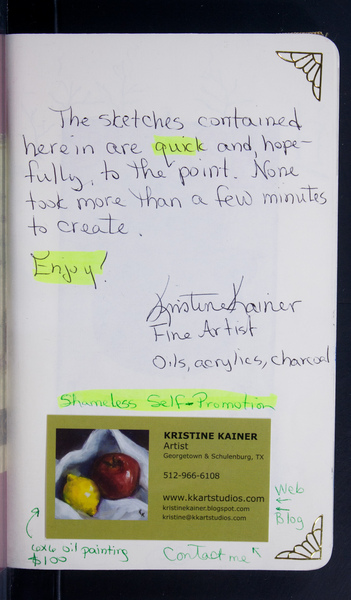 The sketches contained
herein are quick and, hope-
fully, to the point. None
took more than a few minutes
to create.
Enjoy!
Kristine Kainer
Fine Artist
Oils, acrylics, charcoal
Shameless Self-Promotion
KRISTINE KAINER
Artist
Georgetown & Schulenburg, TX
512-966-6108
www.kkartstudios.com
kristinekainer.blogspot.com
kristine@kkartstudios.com
Web
Blog
6x6 oil painting
$100
Contact me